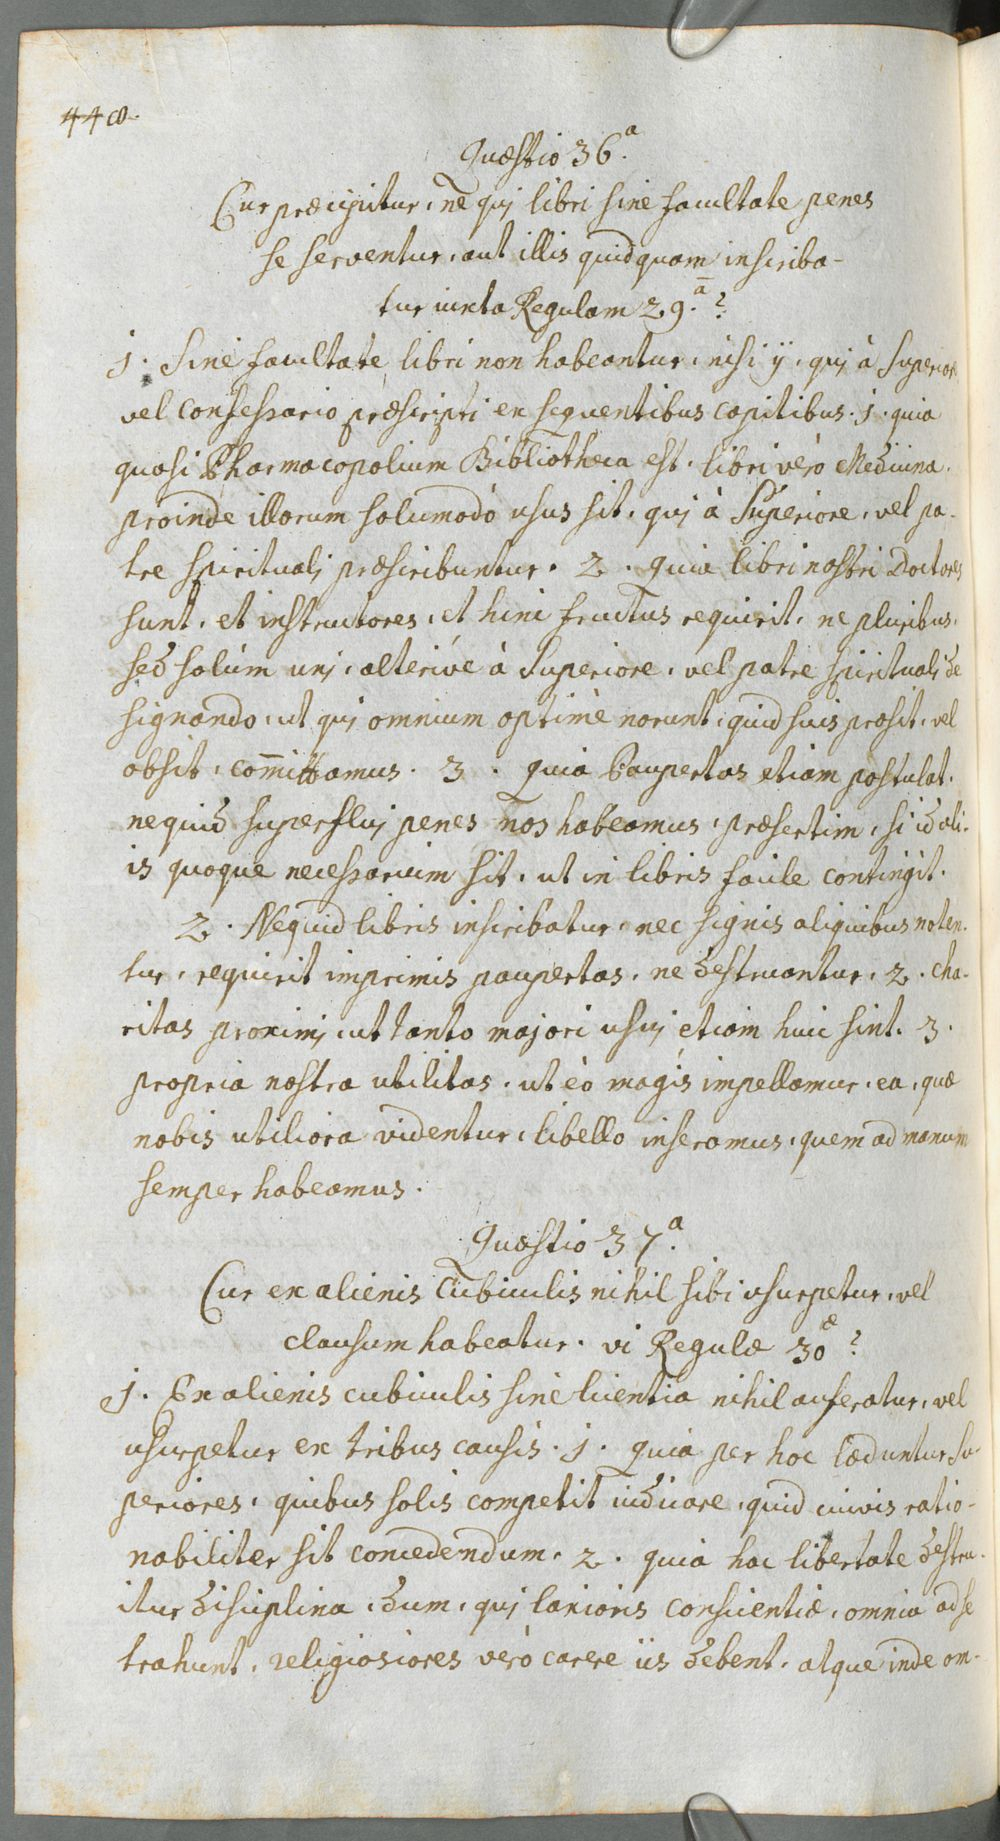 448.
Quæstio 36.ª
Cur præcipitur, ne qui libri sine facultate penes
se serventur, aut illis quidquam inscriba-
tur iuxta Regulam 29.ª?
1. Sine facultate libri non habeantur, nisi ij, qui à Superiore
vel confessario præscripti ex sequentibus capitibus. 1. quia
quasi Pharmacopolium Bibliotheca est, libri vèrò Medicina.
proinde illorum solummodò usus sit, qui à Superiore, vel pa-
tre spirituali præscribuntur. 2. quia libri nostri Doctores
sunt, et instructores, et hinc fructus requirit, ne pluribus,
sed solùm uni, alterive à Superiore, vel patre spirituali de
signando, ut qui omnium optimè norunt, quid suis prosit, vel
obsit, com̄ittamus. 3. quia Paupertas etiam postulat,
nequid superflui penes nos habeamus, præsertim, si id ali-
is quoque necessarium sit, ut in libris facile contingit.
2. Nequid libris inscribatur, nec signis aliquibus noten-
tur, requirit imprimis paupertas, ne destruantur. 2. cha-
ritas proximi, ut tanto majori usui etiam huic sint. 3.
propria nostra utilitas, ut eò magis impellamur, ea, quæ
nobis utiliora videntur, libello inseramus, quem ad manum
semper habeamus.
Quæstio 37.ª
Cur ex alienis cubiculis nihil sibi usurpetur, vel
clausum habeatur, vi Regulæ 30æ?
1. Ex alienis cubiculis sine licentia nihil auferatur, vel
usurpetur ex tribus causis. 1. quia per hoc læduntur Su-
periores, quibus solis competit iudicare, quid cuivis ratio-
nabiliter sit concedendum. 2. quia hac libertate destru-
itur disciplina, dum, qui laxioris conscientiæ, omnia ad se
trahunt, religiosiores vèrò carere iis debent, atque inde om-